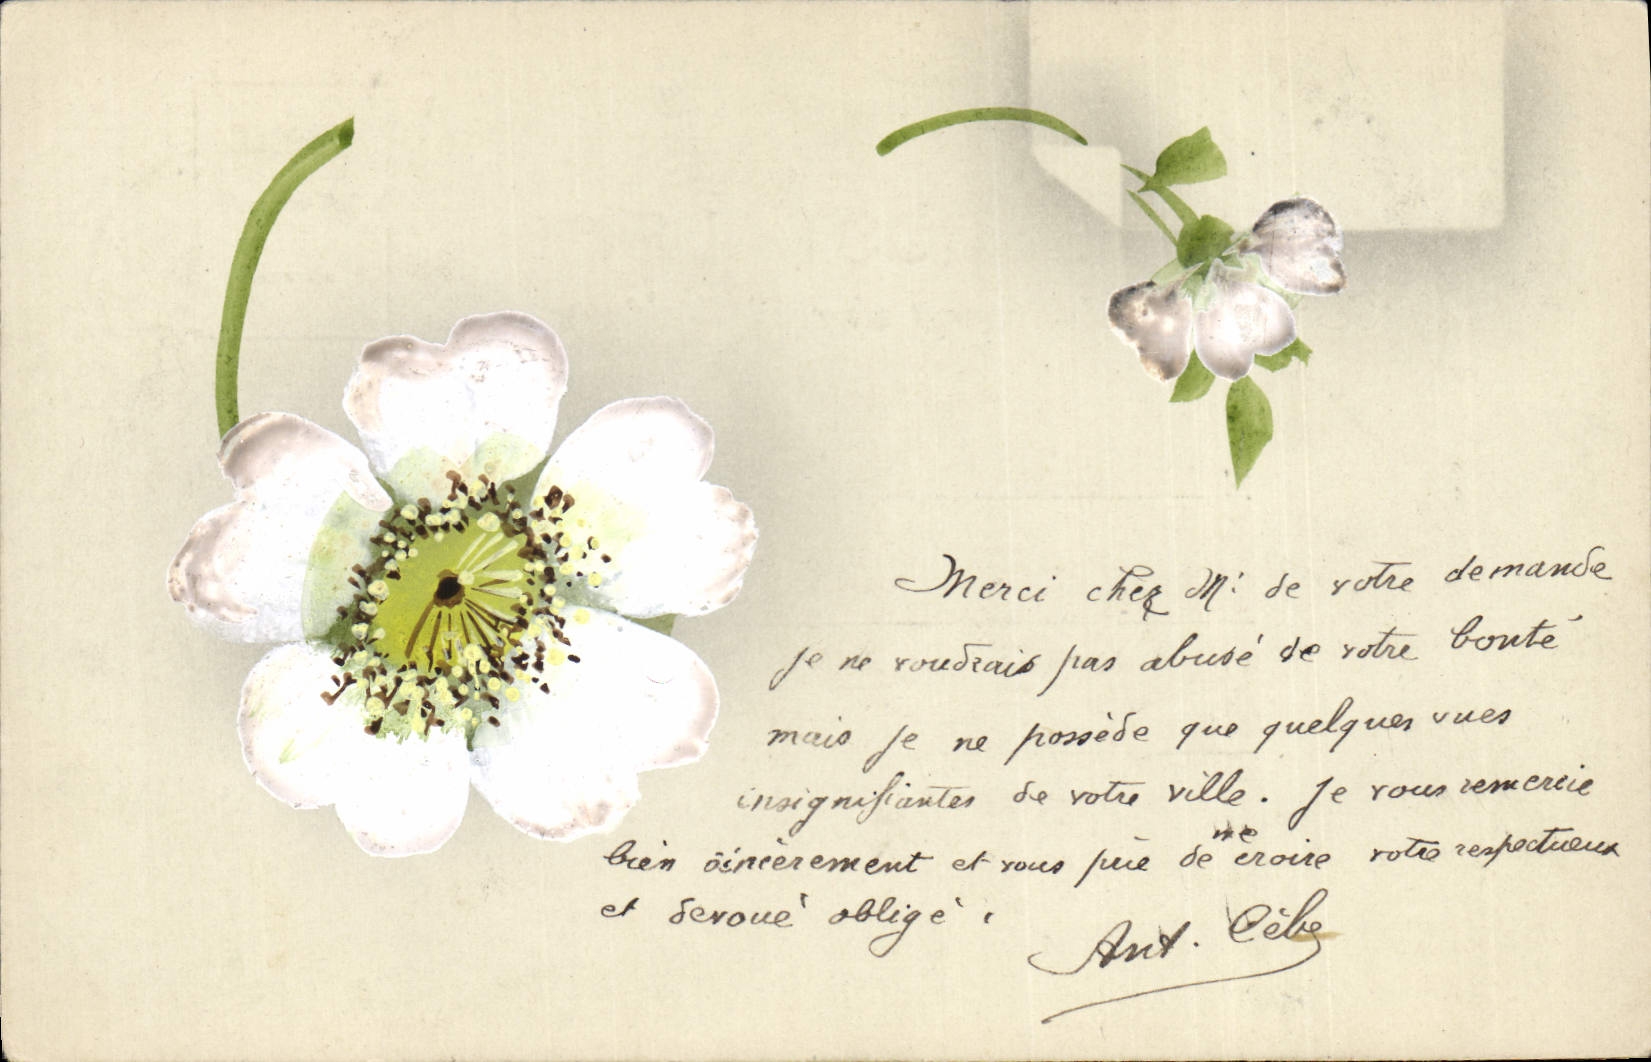 Merci chez Mr de votre demande
je ne voudrais pas abusé de votre bonté
mais je ne possède que quelques vues
insignifiantes de votre ville. Je vous remercie
bien sincèrement et vous prie de me croire votre respectueux
et devoué obligé.
Ant. Cèbe